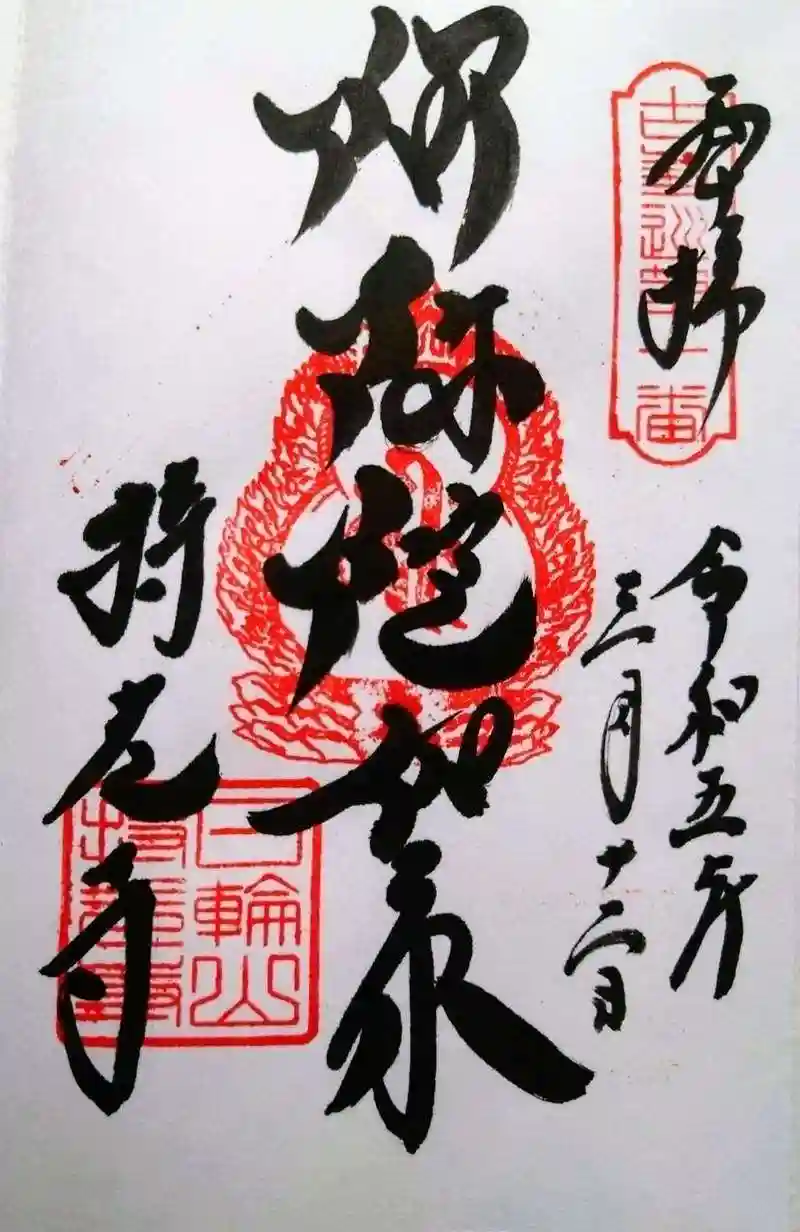 奉拝
令和五年
三月十二日
阿弥陀如来
持光寺
日輪山
持光寺